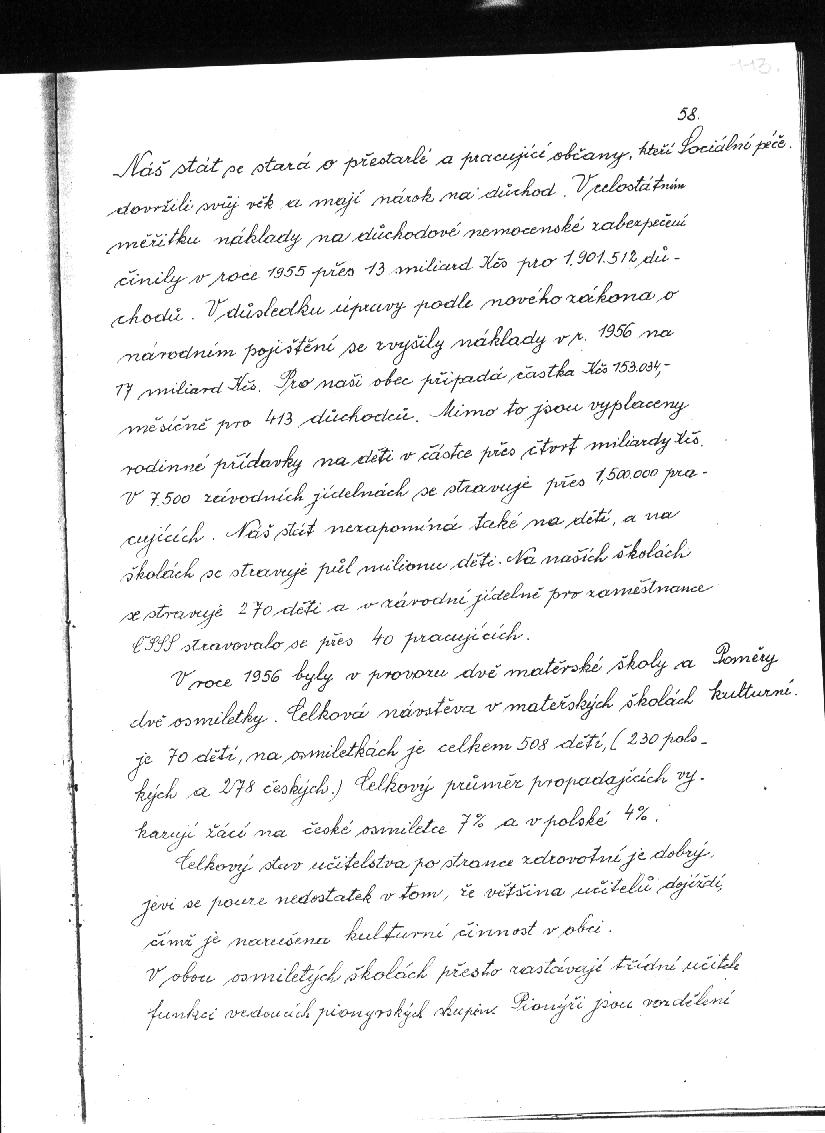 113.
58.
Náš stát se stará o přestarlé a pracující občany, kteří Sociální péče.
dovršili svůj věk a mají nárok na důchod. V celostátním
měřítku náklady na důchodové nemocenské zabezpečení
činily v roce 1955 přes 13 miliard Kčs pro 1,901.512 dů-
chodů. V důsledku úpravy podle nového zákona o
národním pojištění se zvýšily náklady v r. 1956 na
17 miliard Kčs. Pro naši obec připadá částka Kčs 153.034,-
měsíčně pro 413 důchodců. Mimo to jsou vyplaceny
rodinné přídavky na děti v částce přes čtvrt miliardy Kčs.
V 7.500 závodních jídelnách se stravuje přes 1,500.000 pra-
cujících. Náš stát nezapomíná také na děti, a na
školách se stravuje půl milionu dětí. Na našich školách
se stravuje 270 dětí a v závodní jídelně pro zaměstnance
ČSSS stravovalo se přes 40 pracujících.
V roce 1956 byly v provozu dvě mateřské školy a Poměry
dvě osmiletky. Celková návštěva v mateřských školách kulturní.
je 70 dětí, na osmiletkách je celkem 508 dětí, (230 pols-
kých a 278 českých.) Celkový průměr propadajících vy-
kazují žáci na české osmiletce 7% a v polské 4%.
Celkový stav učitelstva po strance zdravotní je dobrý,
jeví se pouze nedostatek v tom, že většina učitelů dojíždí,
čímž je narušena kulturní činnost v obci.
V obou osmiletých školách přesto zastávají třídní učitelé
funkci vedoucích pionýrských skupin. Pionýři jsou rozděleni